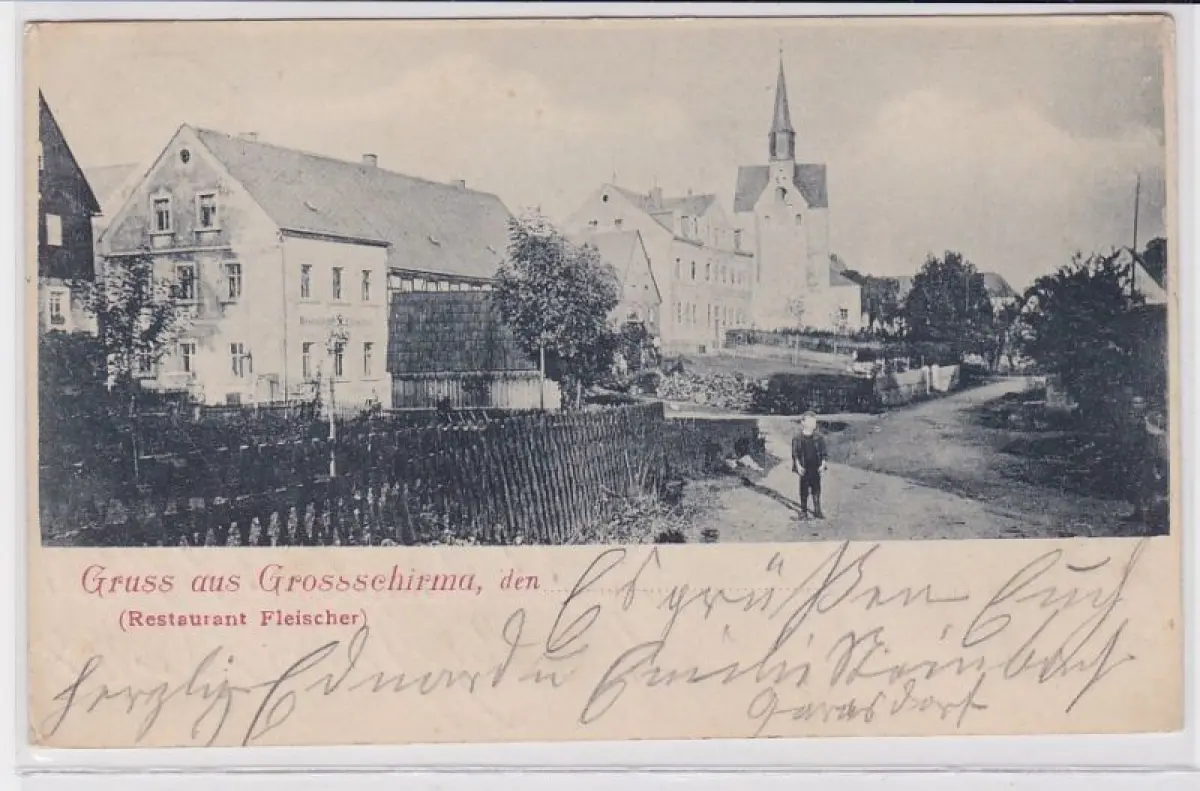 Gruss aus Grossschirma, den
(Restaurant Fleischer)
Es grüßen Euch
herzlig Eduard u Emilie Steinbach